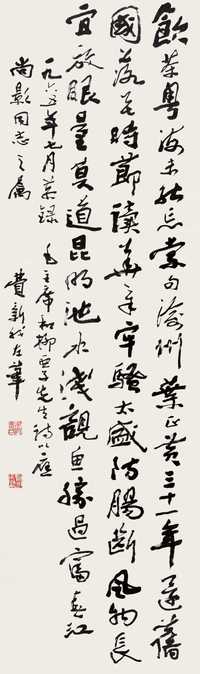 飲茶粵海未能忘索句渝州葉正黃三十一年還舊
國落花時節讀華章牢騷太盛防腸斷風物長
宜放眼量莫道昆明池水淺觀魚勝過富春江
一九六五年七月黃錄毛主席和柳亞子先生詩以應
尚彭同志之屬
費新我左筆